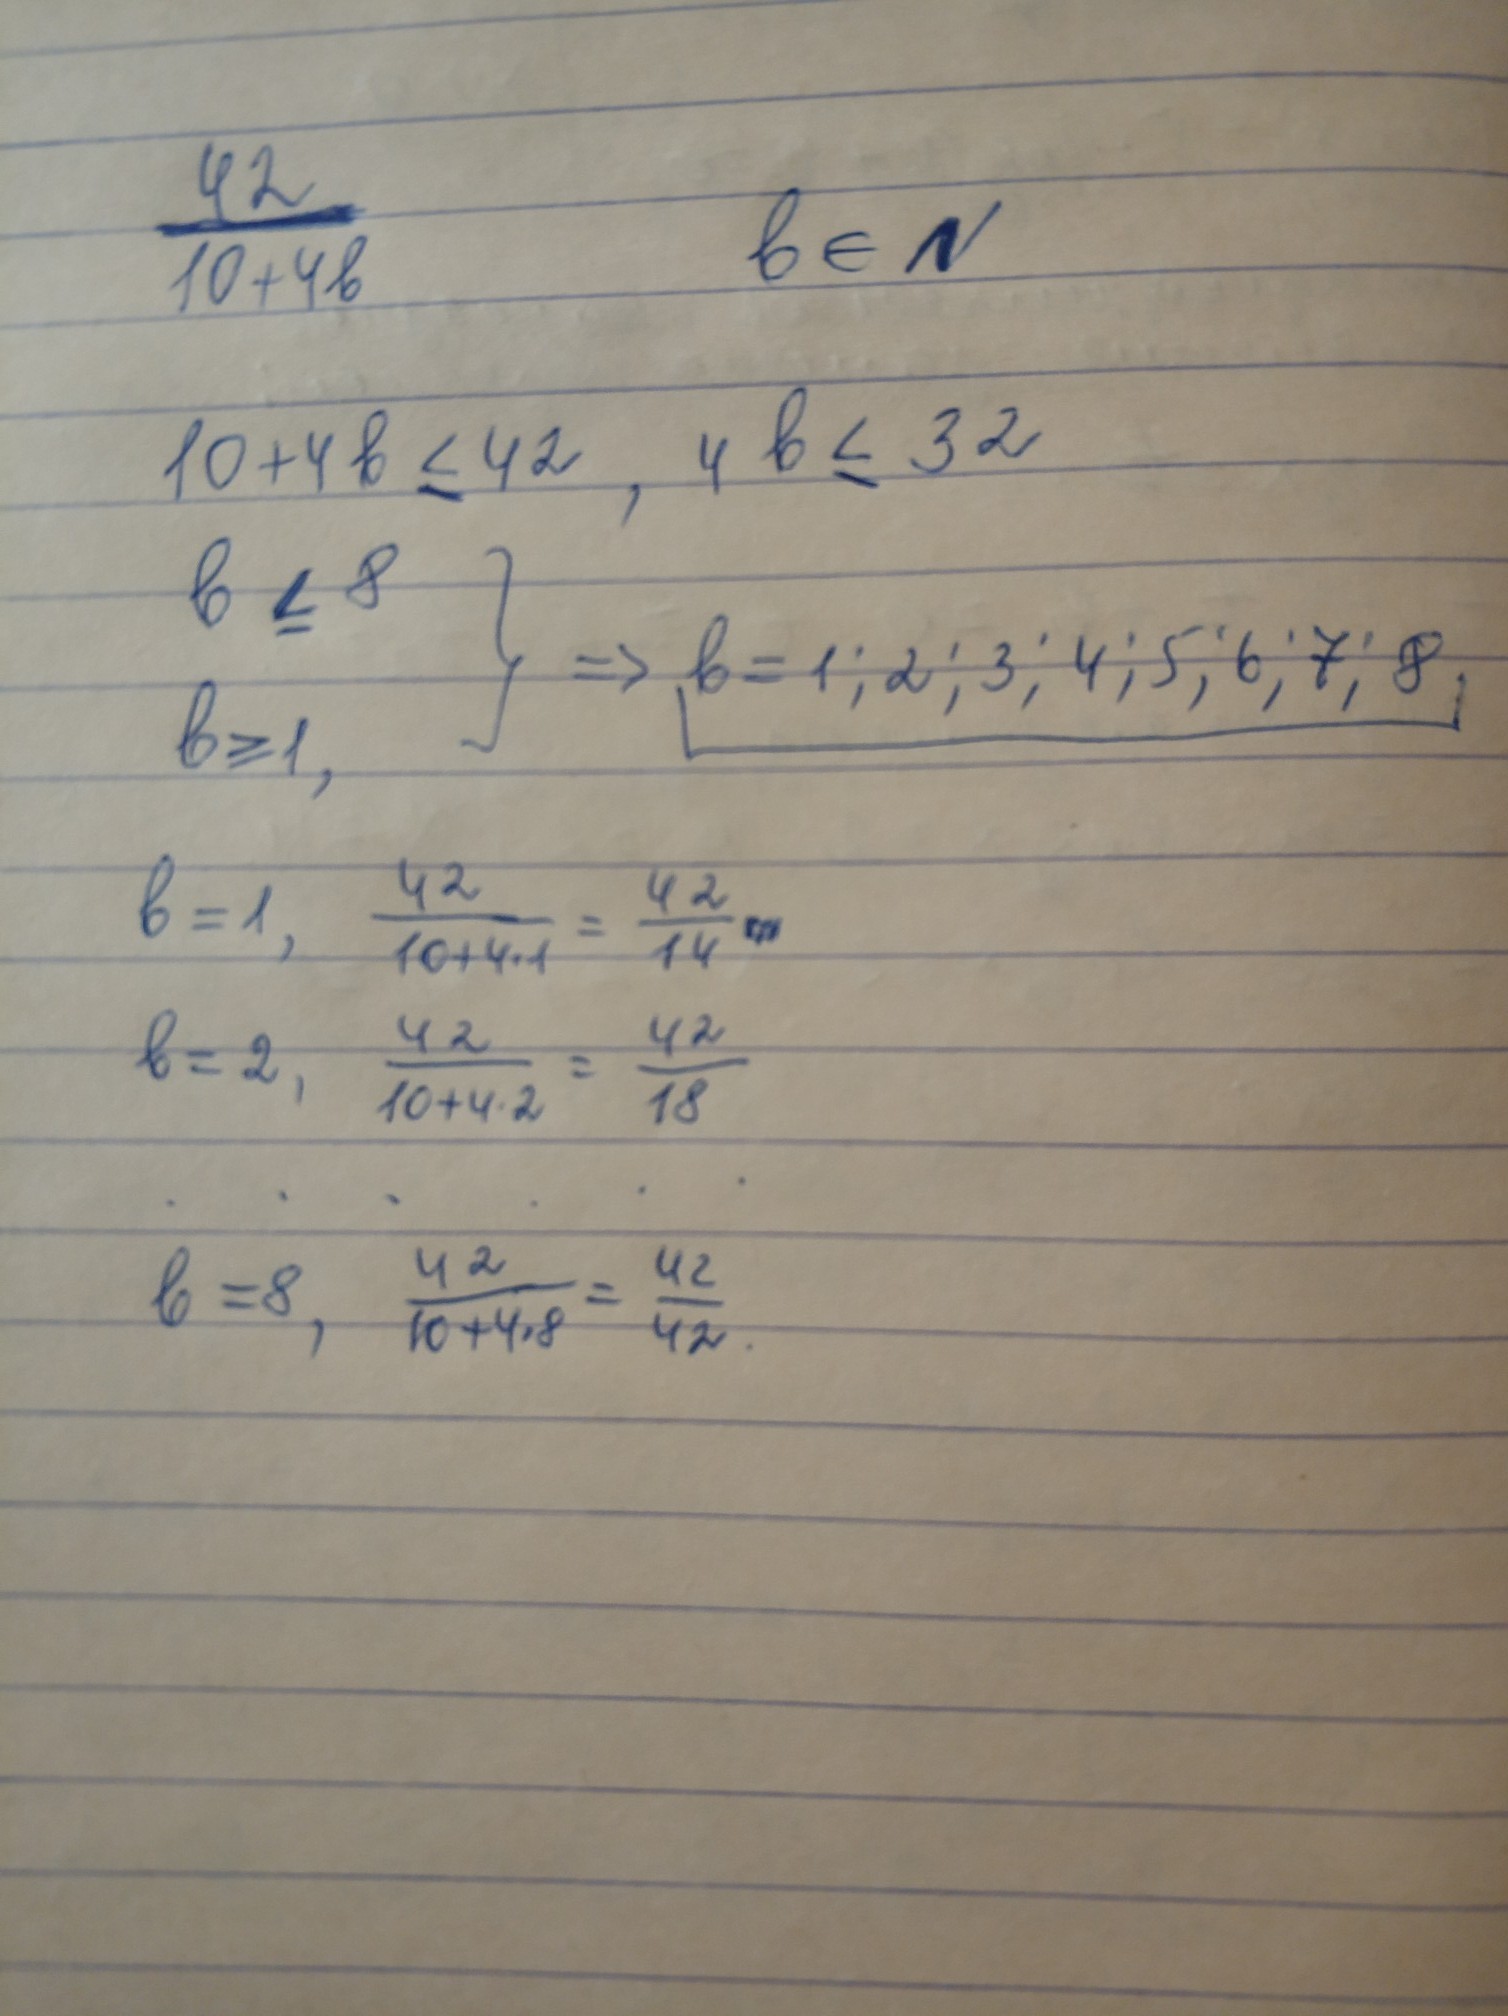 42/(10+4b)    b ∈ N
10+4b ≤ 42, 4b ≤ 32
b ≤ 8
b ≥ 1, } => b = 1; 2; 3; 4; 5; 6; 7; 8.
b = 1, 42/(10+4·1) = 42/14
b = 2, 42/(10+4·2) = 42/18
. . . . . .
b = 8, 42/(10+4·8) = 42/42.